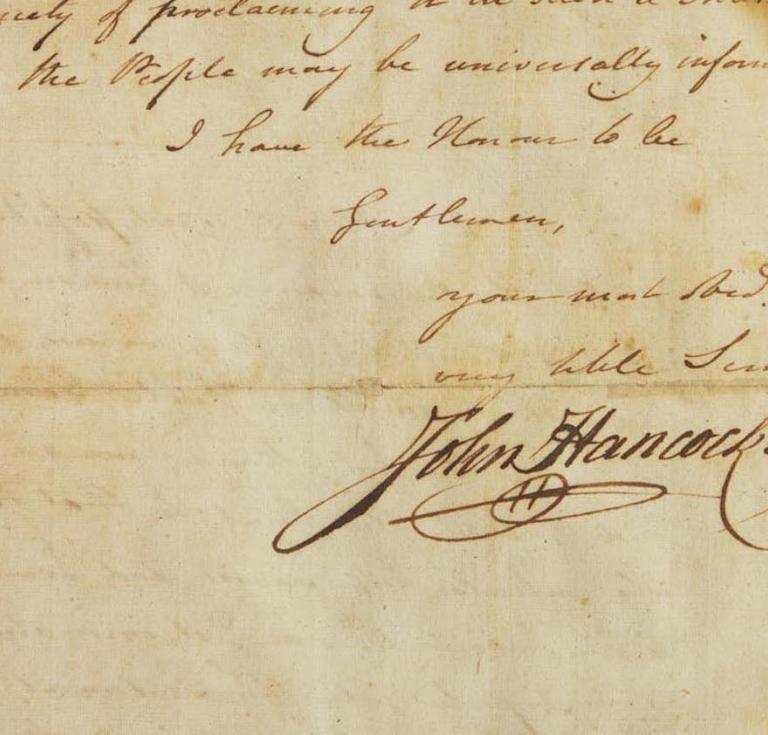 of proclaiming it in such a
the People may be universally inform
I have the Honour to be
Gentlemen,
your most obed.
very hble Ser
John Hancock